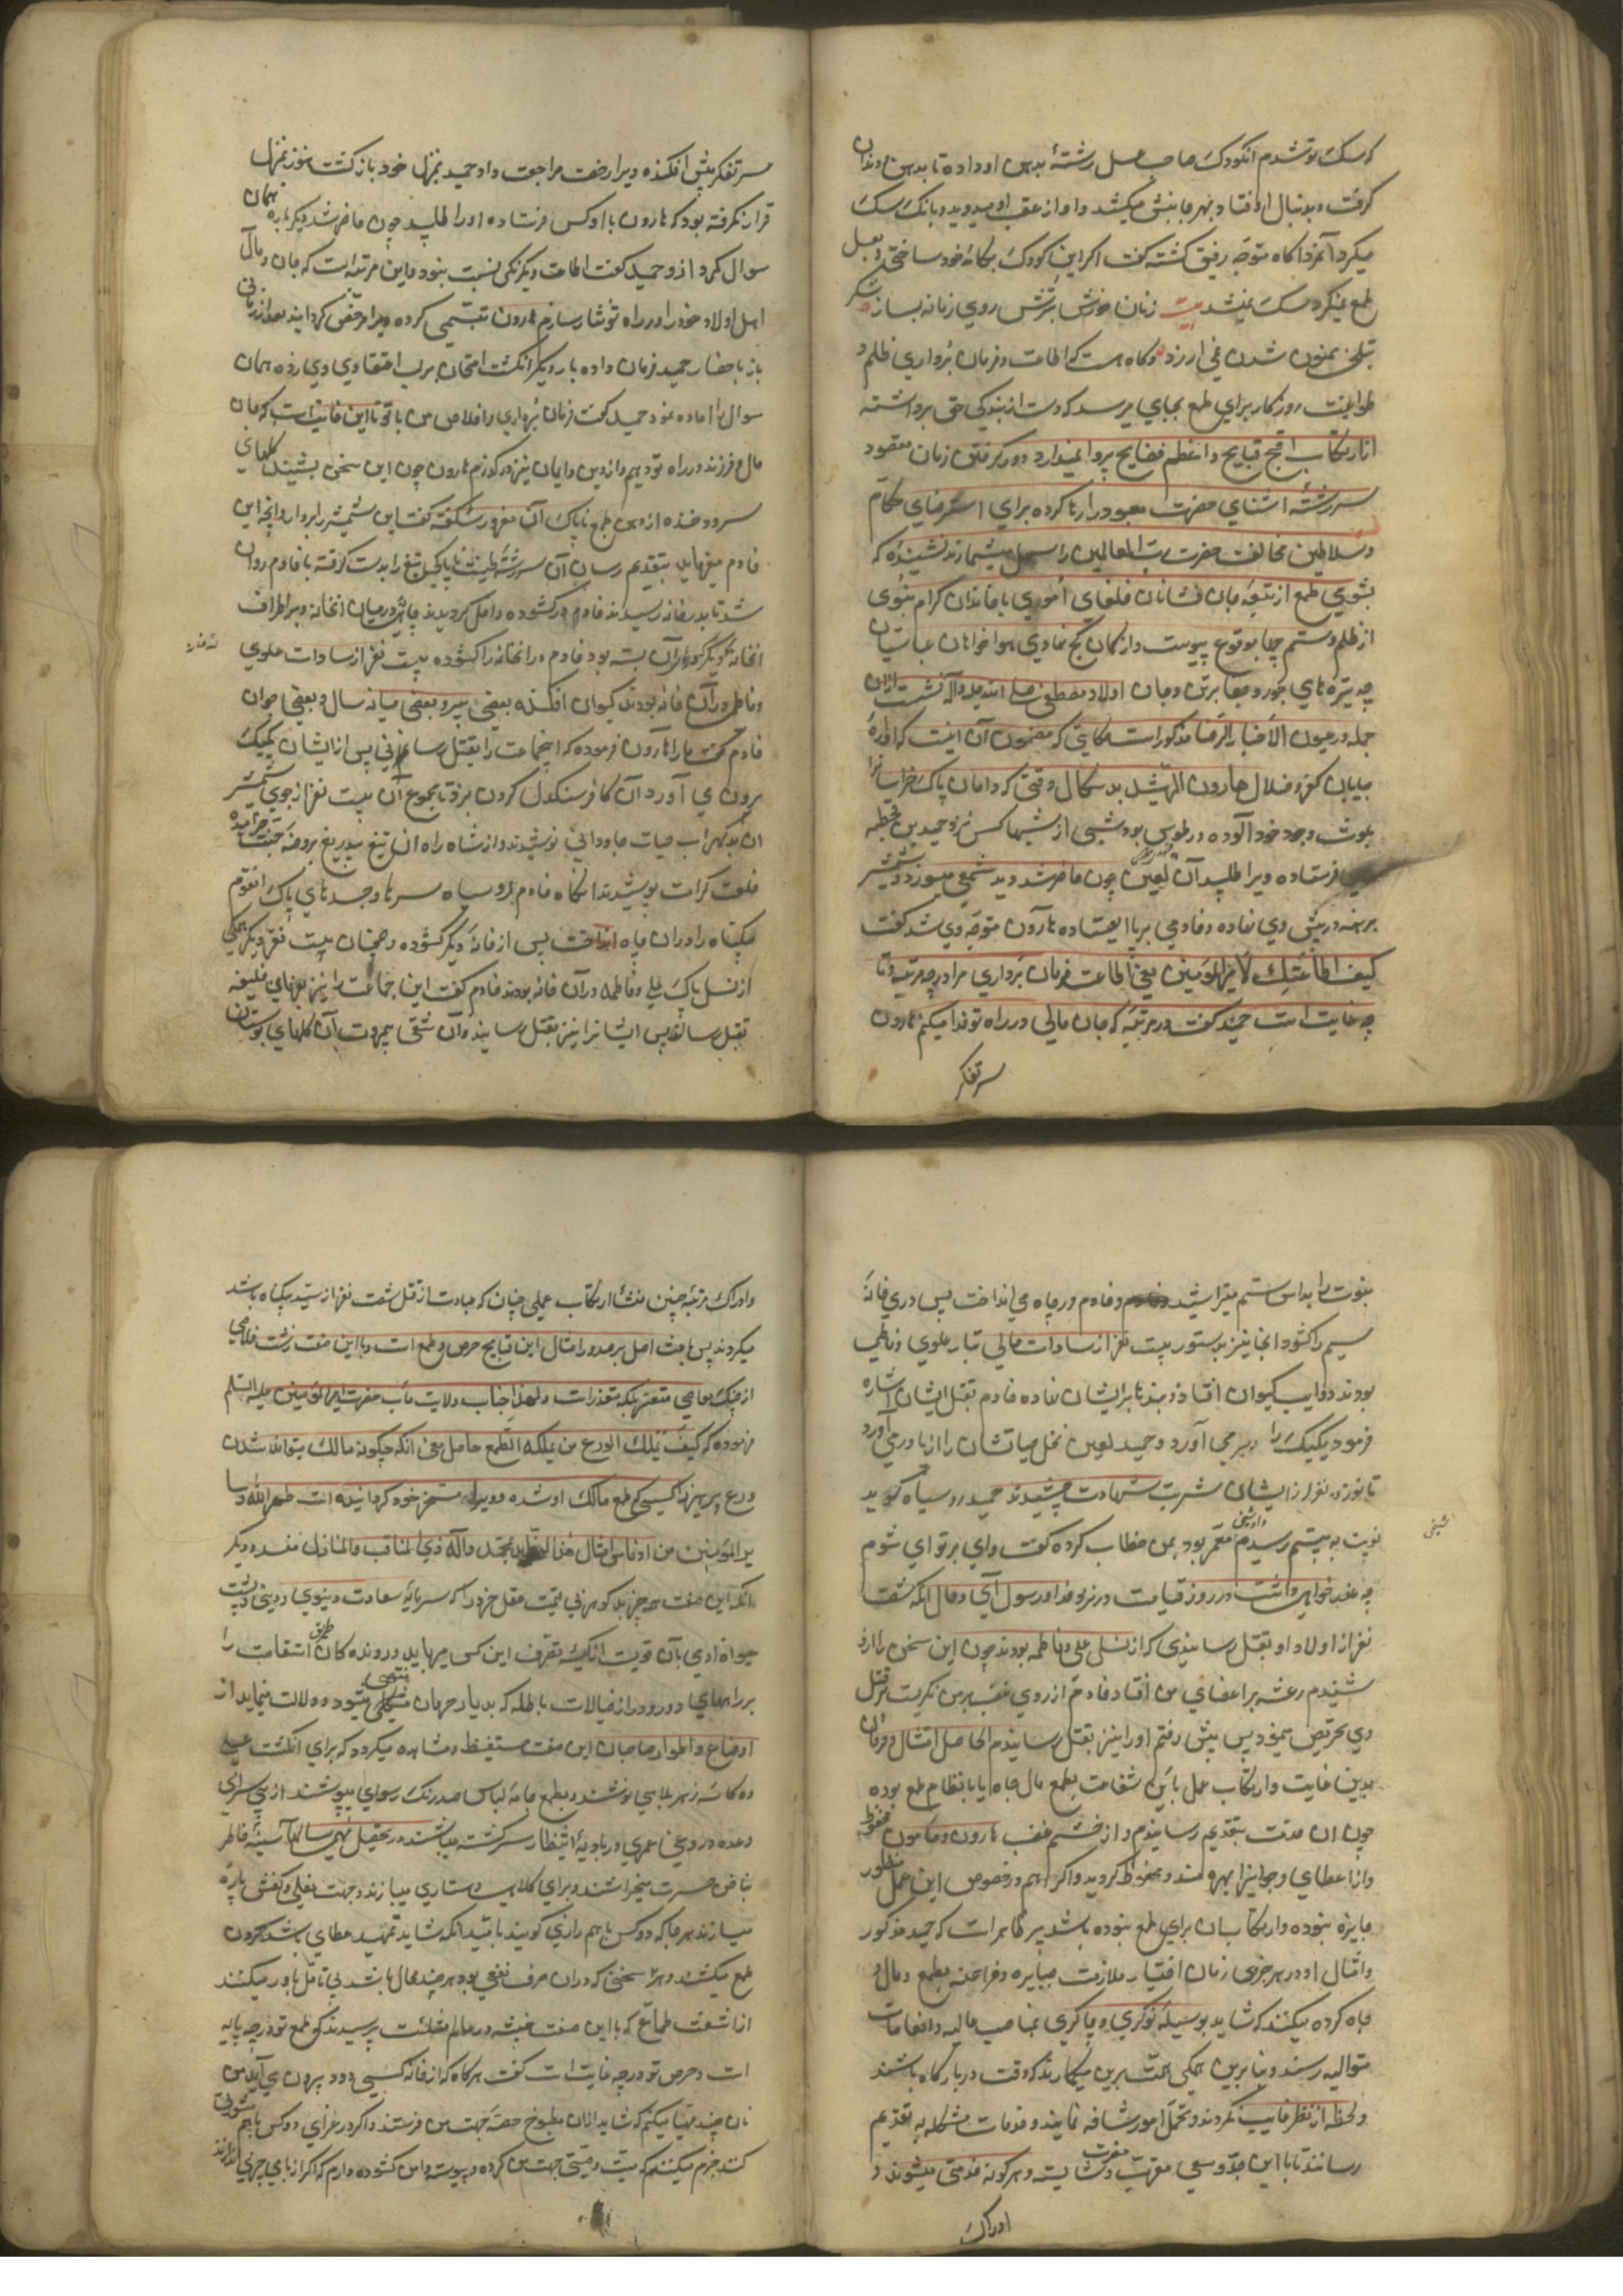 که سک تو شدم انکودک صاحب عسل رشتهٔ بدهن او داده تا بدهن و دندان
کرفت و بدنبال او افتاد و بهر جانبش میکشید و او از عقب او میدوید و بانک سک
میکرد آنمرد اکاه متوجه رفیق کشته کفت اکر این کودک بکامهٔ خود ساختی و بعسل
طمع نمیکرد سک نمیشد بیت زنان خورش بترش روی زمانه بساز شکر
بتلخی ممنون شدن نمی ارزد و کاه هست که اطاعت و فرمان برداری ظلمه و
طواغیت روزکار برای طمع بجایی میرسد که دست از بندکی حق برداشته
از ارتکاب اقبح قبایح و اعظم فضایح پروا نمیدارد و در کرفتن زمان مقصود
سررشتهٔ اشنای حضرت معبود را رها کرده برای استرضای حکام
و سلاطین مخالفت حضرت رب العالمین را سهل میشمارند نشنیدهٔ که
بشومی طمع از تیغ جان فشانان خلفای اموری با خاندان کرام نبوی
از ظلم و ستم چها بوقوع پیوست و از کمان کج نهادی هواخواهان عباسیان
چه تیرهای جور و جفا بر تن و جان اولاد مصطفی صلی الله علیه واله نشست ازان
جمله در عیون الاخبار الرضا مذکور است حکایتی که مضمون آن اینست که آوارهٔ
بیابان کفر و ضلال هارون الرشید بد سکال وقتی که دامان پاک خراسانرا
بلوث وجود خود آلوده در طوس بود شبی از شبها کس نزد حمید بن قحطبه
فرستاده ویرا طلبید آن لعین چون حاضر شد دید شمعی میسوزد و شمشیر
برهنه در پیش وی نهاده و خادمی برپا ایستاده هارون متوجه وی شد کفت
کیف اطاعتک لامیرالمومنین یعنی اطاعت و فرمان برداری مرا در چه مرتبه و تا
چه غایت است حمید کفت در مرتبهٔ که جان و مالی در راه تو فدا میکنم هارون
سر تفکر
سر تفکر پیش افکنده ویرا رخصت مراجعت داد حمید بمنزل خود باز کشت هنوز بمنزل
قرار نکرفته بود که هارون باز کس فرستاده او را طلبید چون حاضر شد دیکر باره همان
سوال کرد ازو حمید کفت اطاعت دیکر نکی نسبت بنود و این مرتبه است که جان و مال
اهل اولاد خود را در راه تو نثار سازم هارون تبسمی کرده ویرا مرخص کردانید بعد از زمانی
باز باحضار حمید فرمان داده بار دیکر انکشت امتحان بر لب اعتقادی وی زده همان
سوال را اعاده نمود حمید کفت فرمان برداری و اخلاص من با تو تا این غایتست که جان
مال و فرزند در راه تو دهم و از دین و ایمان نیز در کذرم هارون چون این سخن بشنید کلهای
سرود خنده از وی طمع ناپاک آن مغرور شکفته کفت این شمشیر را بردار و آنچه این
خادم میفرماید بتقدیم رسان آن سررشته طینت ناپاک تیغ را بدست کرفته با خادم روان
شد تا بدر خانه رسیدند خادم در کشوده داخل کردیدند چاهی در میان انخانه و بر اطراف
انخانهٔ دیکر که درهای آن بسته بود خادم در انخانه را کشوده بیست نفر از سادات علوی
و فاطمی در آن خانه بودند کیسوان افکنده بعضی پیر و بعضی میانه سال و بعضی جوان
خادم کفت ما را هارون فرموده که اینجماعت را بقتل رسانی پس از ایشان یکیک
بیرون می آورد آن کافر سنکدل کردن میزد تا مجموع آن بیست نفر از جوی شمشیر
ان بدکهر اب حیات جاودانی نوشیدند و از شاه راه ان تیغ بیدریغ بروضهٔ جنت خرامیده
خلعت کرامت پوشیدند انکاه خادم رو سیاه سرها و جسدهای پاک انقوم
بیکناه را در ان چاه انداخت پس از خانهٔ دیکر کشوده و همچنان بیست نفر دیکر همکی
از نسل پاک علی و فاطمه در آن خانه بودند خادم کفت این جماعت را نیز بفرمان خلیفه
بقتل رسان پس ایشانرا نیز بقتل رسانید و آن شقی بیمروت آن کلهای بوستان
نبوت را بداس ستم میتراشید و خادم در چاه می انداخت پس در خانهٔ
سیم را کشود انجا نیز بدستور بیست نفر از سادات عالی تبار علوی و فاطمی
بودند ذوایب کیسوان افتاد و بندها بر ایشان نهاده خادم بقتل ایشان اشاره
فرمود یکیک را بیرون می آورد و حمید لعین نخل حیاتشان را از پا در می آورد
تا نوزده نفر از ایشان شربت شهادت چشیدند حمید رو سیاه کوید
نوبت به بیستم رسیدم و او شیخی معمر بود بمن خطاب کرده کفت وای بر تو ای شوم
چه عذر خواهی داشت در روز قیامت در نزد خدا و رسول آیی و حال انکه شصت
نفر از اولاد او بقتل رسانیدی که از نسل علی و فاطمه بودند چون این سخن را ازو
شنیدم رعشه بر اعضای من افتاد خادم از روی غضب بر من نکریست و بر قتل
وی تحریص مینمود پس پیش رفتم او را نیز بقتل رسانیدم الحاصل امتثال و فرمان
بدین غایت و ارتکاب عمل باین شقاوت بطمع مال و جاه یا بانتظام طمع بوده
چون ان خدمت بتقدیم رسانیدم و از خشم و غضب هارون مامون و محفوظ
و از اعطای و جوایز بهره مند و محظوظ کردید و اکر هم در خصوص این عمل منظور
جایزه نبوده و ارتکاب ان برای طمع نبوده باشد پر ظاهر است که حمید مذکور
و امثال او در هر جزوی زمان اختیار ملازمت جبابره و فراعنه بطمع و مال و
جاه کرده میکنند که شاید بوسیلهٔ نوکری و چاکری بمناصب عالیه و انعامات
متوالیه رسند و بنابرین همکی همت برین میکمارند که وقت در بارکاه باشند
و لحظه از نظر غایب نکردند و تحمل امور شاقه نمایند و خدمات مشکله به تقدیم
رسانند تا با این جد و سعی مقرب حضرت و شایسته و هر کونه خدمتی میشوند و
ادراک
و ادراک مرتبهٔ چنین منشأ ارتکاب عملی چنان که عبارت از قتل شصت نفر از سید بیکناه باشد
میکردند پس باعث اصل بر صدور امثال این قبایح حرص و طمع است و با این صفت زشت خلاصی
از چنک معاصی متعسر بلکه متعذر است و لهذا جناب ولایت مآب حضرت امیرالمومنین علیه السلم
فرموده که کیف یملک الورع من یملکه الطمع حاصل معنی انکه چکونه مالک میتواند شدن
ورع و پرهیز را کسی که طمع مالک او شده و ویرا مسخر خود کردانیده است طهر الله و سا
یر المومنین من ادناس امثال هذا الرذایل بمحمد وآله ذوی المناقب والمفاخر و دیکر
انکه این صفت هر چیز بد کوهر بی قیمت عقل خود را که سرمایهٔ سعادت دنیوی و دینی و پشت
برراههای دور و دراز خیالات باطله که بدیار حرمان منتهی میشود دلالت مینماید از
اوضاع و اطوار صاحبان این صفت مستفیظ و مشاهده میکردد که برای انکشت عسلی
ده کاسهٔ زهر بلا می نوشند و بطمع جامهٔ لباس صد رنک رسوایی میپوشند از پی سرابی
وعده دروغی عمری در بادیهٔ انتظار سرکشته میباشند در تحصیل نیمی سالها آیینهٔ خاطر
بناخن حسرت میخراشند و برای کلاهی دستاری میبازند و جهت نعلی کفش پاره
میسازند هر جا که دو کس با هم رازی کویند بامید انکه شاید تمهید عطای باشد کردن
طمع میکشند و هر سخنی که در ان حرف نفعی بود هر چند محال باشد بی تامل باور میکنند
از اشعث طماع که با این صفت خبیثه در عالم مثلست پرسیدند که طمع تو در چه پایه
است و حرص تو در چه غایت است کفت هر کاه که از خانه کسی دود بیرون می آید من
نان چند مهیا میکنم که شاید از ان مطبوخ حصه جهت من فرستند و اکر در عزای دو کس با هم سرکوشی
کنند جزم میکنم که میت وصیتی جهت من کرده و پیوسته دامن کشوده دارم که اکر از بامی چیزی اندازند